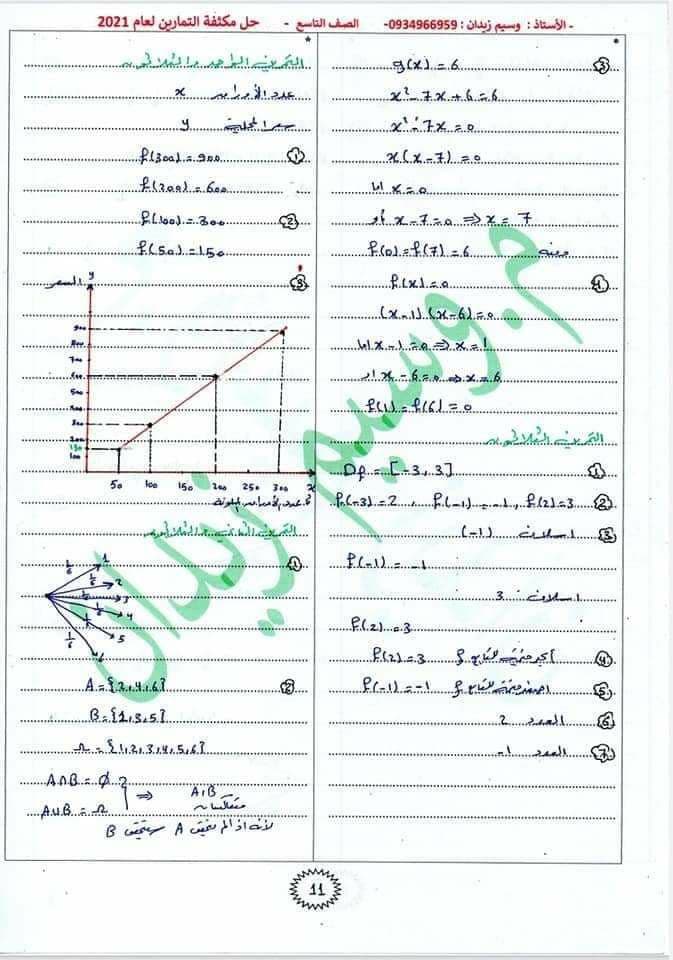 - الأستاذ : وسيم زيدان : 0934966959- الصف التاسع - حل مكثفة التمارين لعام 2021
③ g(x) = 6
x² - 7x + 6 = 6
x² - 7x = 0
x(x - 7) = 0
اما x = 0
أو x - 7 = 0 ⇒ x = 7
ومنه f(0) = f(7) = 6
④ f(x) = 0
(x - 1)(x - 6) = 0
اما x - 1 = 0 ⇒ x = 1
أو x - 6 = 0 ⇒ x = 6
f(1) = f(6) = 0
التمرين الثلاثون
① Df = [-3, 3]
② f(-3) = 2 , f(-1) = -1 , f(2) = 3
③ اسلاف (-1)
f(-1) = -1
اسلاف 3
f(2) = 3
④ أكبر قيمة للتابع f f(2) = 3
⑤ اصغر قيمة للتابع f f(-1) = -1
⑥ العدد 2
⑦ العدد -1
التمرين الواحد والثلاثون
عدد الأوراق x
سعر y
① f(300) = 900
f(200) = 600
② f(100) = 300
f(50) = 150
③
السعر y
900
800
700
600
500
400
300
200
150
100
50 100 150 200 250 300 x
عدد الأوراق الملونة
التمرين الثاني والثلاثون
①
1/6 1
1/6 2
1/6 3
1/6 4
1/6 5
1/6 6
② A = {2,4,6}
B = {1,3,5}
Ω = {1,2,3,4,5,6}
A∩B = ∅
A∪B = Ω
⇒ A , B
متعاكسان
لأنه اذا لم يتحقق A سيتحقق B
م. وسيم زيدان
11